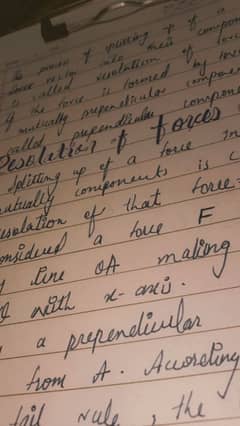 The process of splitting up of a
force vector into their components
is called resolution of force
If the force is formed by two
mutually prependicular components
called prependicular components
Resolution of forces
Splitting up of a force in
mutually components is c
esolution of that force
onsidered a force F
line OA making
with x-axis.
a prependicular
from A. Accoreting
tail rule, the